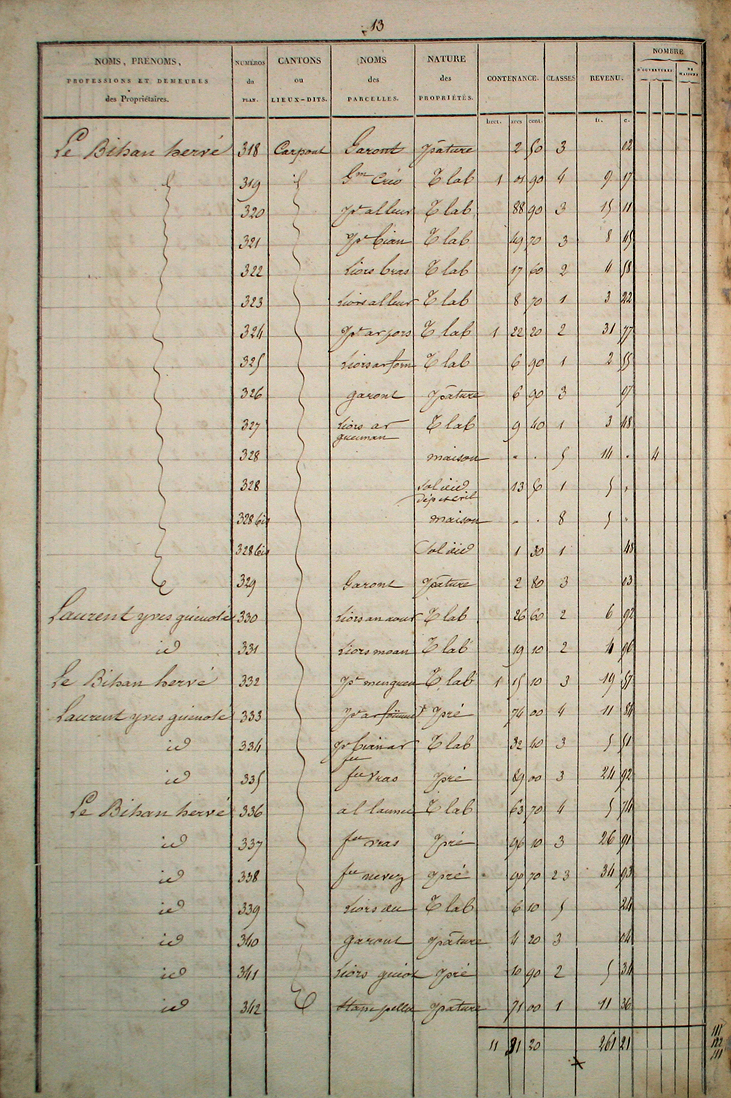 13
NOMS, PRÉNOMS, PROFESSIONS ET DEMEURES des Propriétaires. NUMÉROS du PLAN. CANTONS ou LIEUX-DITS. NOMS des PARCELLES. NATURE des PROPRIÉTÉS. CONTENANCE. CLASSES REVENU. NOMBRE
hect. ares cent. fr. c.
Le Bihan hervé 318 Carpont Garont pâture 2 50 3 12
319 Gm Créo T lab 1 01 90 4 9 17
320 pr alleur T lab 88 90 3 15 11
321 pr bian T lab 49 70 3 8 45
322 Liors bras T lab 17 60 2 4 58
323 Liors alleur T lab 8 70 1 3 22
324 pr ar pors T lab 1 22 20 2 31 77
325 Liors ar forn T lab 6 90 1 2 55
326 garont pâture 6 90 3 17
327 Liors ar T lab 9 40 1 3 48
328 maison - - 5 14 - 4
328 Sol id 13 50 1 5 -
328 bis maison - - 8 5 -
328 bis Sol id 1 30 1 48
329 Garont Pâture 2 80 3 13
Laurent yves guénolé 330 T lab 26 60 2 6 92
id 331 Liors moan T lab 19 10 2 4 96
Le Bihan hervé 332 T lab 1 15 10 3 19 57
Laurent yves guénolé 333 pré 74 00 4 11 84
id 334 T lab 32 40 3 5 51
id 335 fec vras pré 89 00 3 24 92
Le Bihan hervé 336 T lab 63 70 4 5 74
id 337 fec vras pré 96 10 3 26 91
id 338 fec nevez pré 90 70 2 3 34 93
id 339 Liors du T lab 6 10 5 24
id 340 garont pâture 4 20 3 04
id 341 Liors pré 10 90 2 5 34
id 342 pâture 71 00 1 11 36
11 31 20 261 21